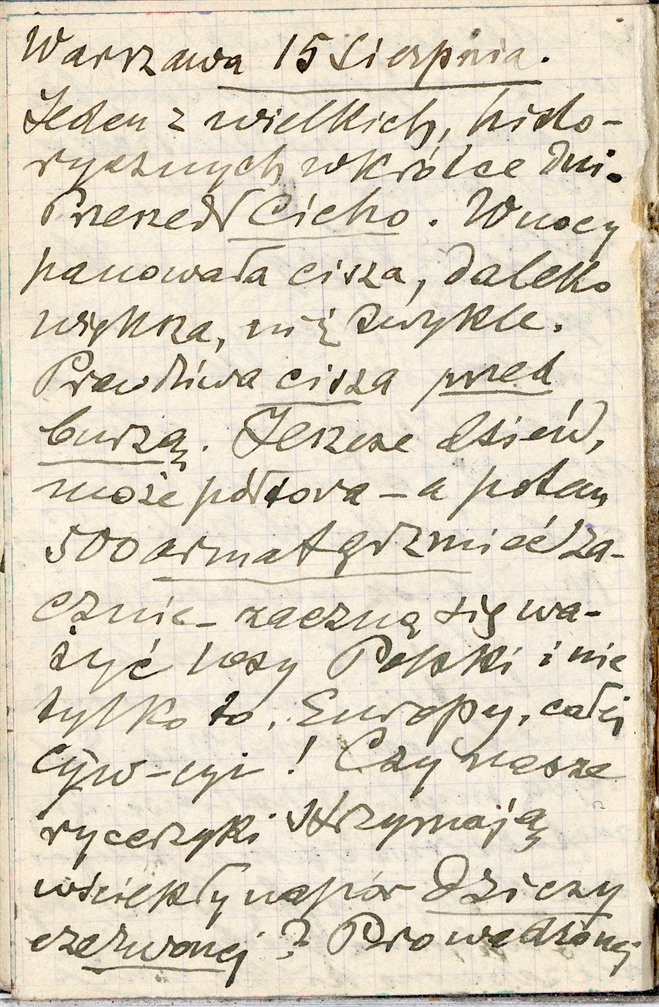 Warszawa 15 Sierpnia.
Jeden z wielkich, histo-
rycznych wkrótce dni.
Przeszedł cicho. W nocy
panowała cisza, daleko
większa, niż zwykle.
Prawdziwa cisza przed
burzą. Jeszcze dzień,
może półtora – a potem
500 armat grzmieć za-
cznie – zaczną się wa-
żyć losy Polski i nie
tylko to, Europy, całej
cyw-cyi! Czy nasze
rycerzyki strzymają
wściekły napór dziczy
czerwonej? Prowadzonej